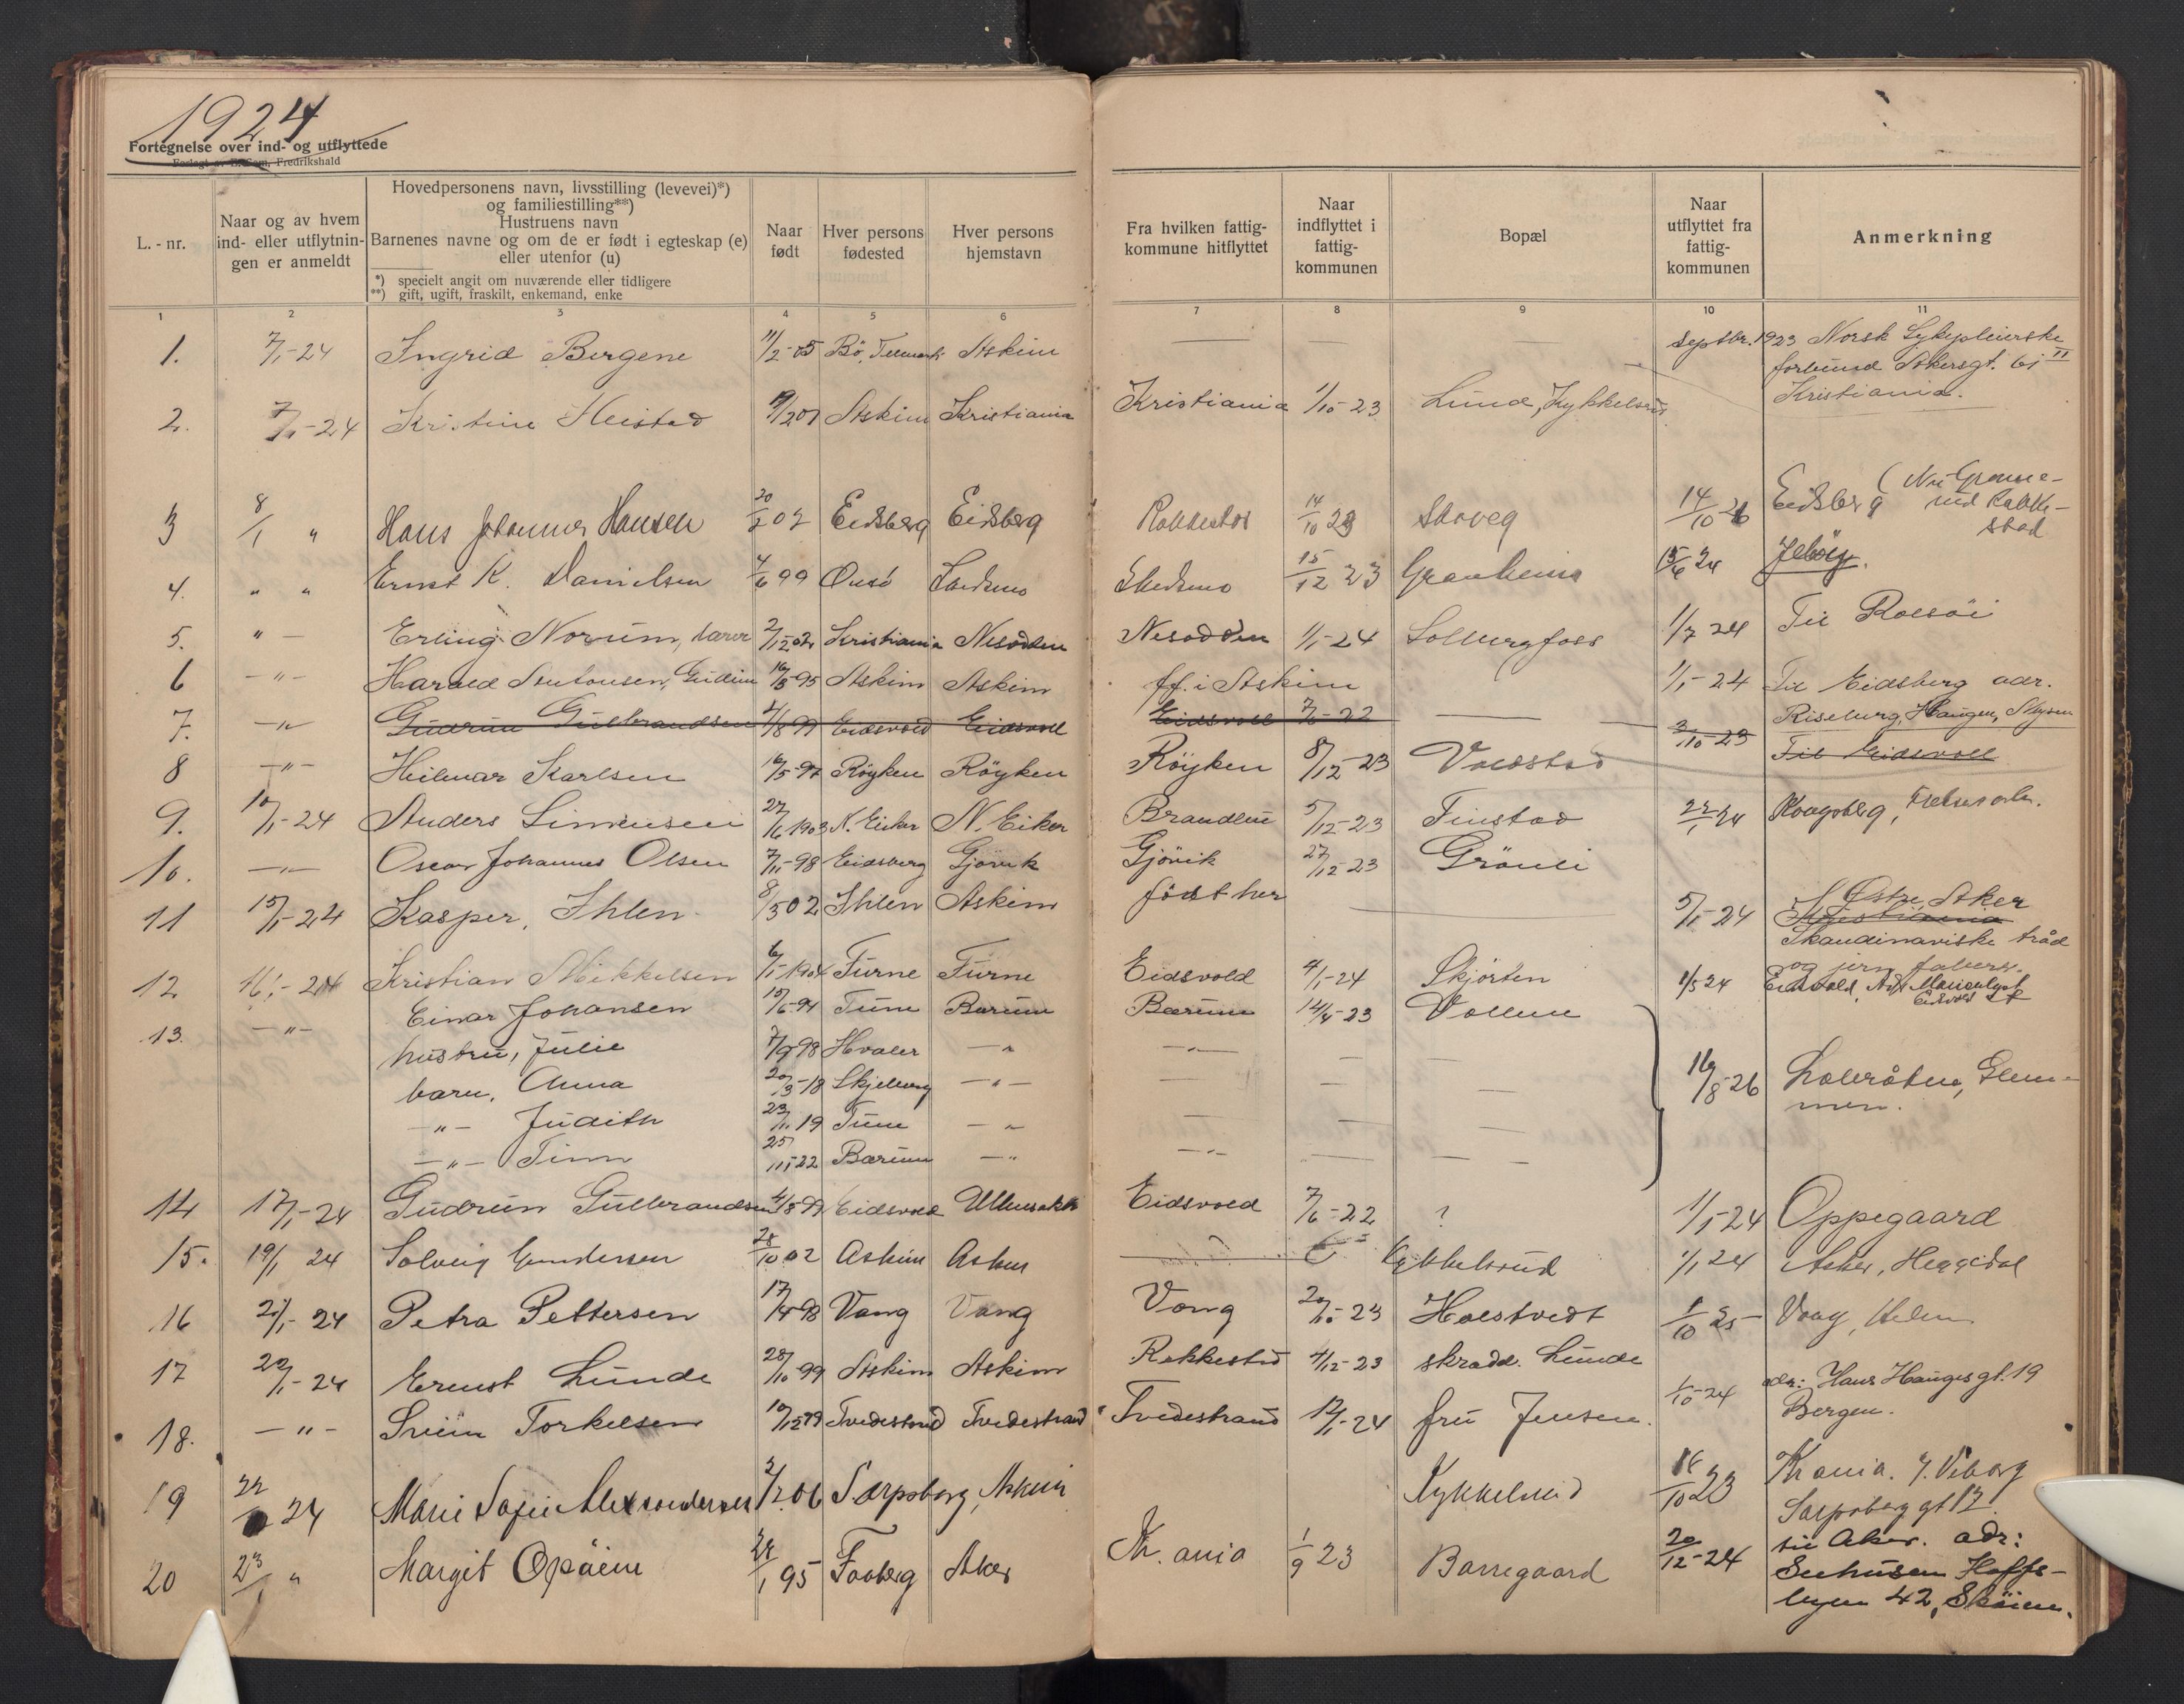 1924
Fortegnelse over ind- og utflyttede
Fredrikshald
L.-nr.
Naar og av hvem ind- eller utflytnin- gen er anmeldt
Hovedpersonens navn, livsstilling (levevei)*)
og familiestilling**)
Hustruens navn
Barnenes navne og om de er født i egteskap (e)
eller utenfor (u)
*) specielt angit om nuværende eller tidligere
**) gift, ugift, fraskilt, enkemand, enke
Naar født
Hver persons fødested
Hver persons hjemstavn
Fra hvilken fattig- kommune hitflyttet
Naar indflyttet i fattig- kommunen
Bopæl
Naar utflyttet fra fattig- kommunen
Anmerkning
1 2 3 4 5 6 7 8 9 10 11
1. 7/1-24 Ingrid Bergene 11/2-05 Bø, Telemark Askim — — septbr. 1923 Norsk Sykepleierske
forbund Akersgt. 61 II
Kristiania.
2. 7/1-24 Kristine Heistad Askim Kristiania Kristiania 1/10-23 Lund, Kykkelsrud
3 8/1 " Hans Johannes Hansen 02 Eidsberg Eidsberg Rakkestad 14/10 23 Skoveg 14/10-26 Eidsberg
4. " " Ernst K. Danielsen 4/6 99 Onsö Skedsmo Skedsmo 15/12 23 Granheim 15/6 24 Jelöy.
5. " — Erling Norum, lærer 2/12 02 Kristiania Nesodden Nesodden 1/1-24 Solbergfoss 1/7 24 Til Rolsöi
6 —"— Harald Antonsen, Gudim 16/3-95 Askim Askim ff. i Askim 1/1-24 Til Eidsberg adr.
Riseberg, Haugen, Mysen
7. —"— Gudrun Gulbrandsen 4/8 99 Eidsvold Eidsvold Eidsvold 7/6-22 — 3/10-23 Til Eidsvold
8 —"— Heilmar Karlsen 16/5-97 Röyken Röyken Röyken 8/12-23 Voldstad
9. 10/1-24 Anders Simensen 27/6 1903 N. Eiker N. Eiker Brandbu 5/12-23 Finstad 22/1 24 Kongsberg,
10. —"— Oscar Johannes Olsen 7/11-98 Eidsberg Gjövik Gjövik 27/12-23 Gröneli
11 15/1-24 Kasper, Ihlen 8/3 02 Ihlen Askim födt her — 5/1-24 Östre Aker
Kristiania
Skandinaviske tråd
og jern fabrik.
12 16/1-24 Kristian Mikkelsen 6/1-1904 Furne Furne Eidsvold 4/1-24 Skjörten 1/5 24 Eidsvold, Marienlyst
Eidsvold St
13. —"— Einar Johansen 15/6-94 Tune Bærum Bærum 14/4-23 Vollene
hustru, Julie 7/9 98 Hvaler —"—
barn, Anna 20/3-18 Skjeberg —"— 16/8-26
—"— Judith 23/11 19 Tune —"—
—"— Finn 25/11-22 Bærum —"—
14 17/1-24 Gudrun Gulbrandsen 4/8-99 Eidsvold Ullensaker Eidsvold 7/6-22 ? 1/1-24 Oppegaard
15. 19/1 24 Solveig Gundersen 28/10 02 Askim Askim Kykkelsrud 1/1 24 Asker, Heggedal
16 21/1-24 Petra Pettersen 17/4 98 Vang Vang Vang 20/10-23 Holstvedt 1/10 25 Vang,
17 22/1-24 Ernst Lunde 28/10 99 Askim Askim Rakkestad 4/12-23 skrædd. Lunde 1/10-24 adr: Hans Hauges gt. 19
Bergen.
18. —"— Svein Torkelsen 10/12 99 Tvedestrand Tvedestrand Tvedestrand 12/1-24 fru Jensen.
19 22/1 24 Marie Sofie Alexandersen 2/2 06 Sarpsborg, Askim Kykkelsrud 16/10 23 Kr.ania.
Sarpsborg gt 17
20 23/1 " Margit Opåien 24/1 95 Faaberg Aker Kr.ania 1/9 23 Borregaard 20/12-24 til Aker. adr:
Hoffs-
42, Sköien.